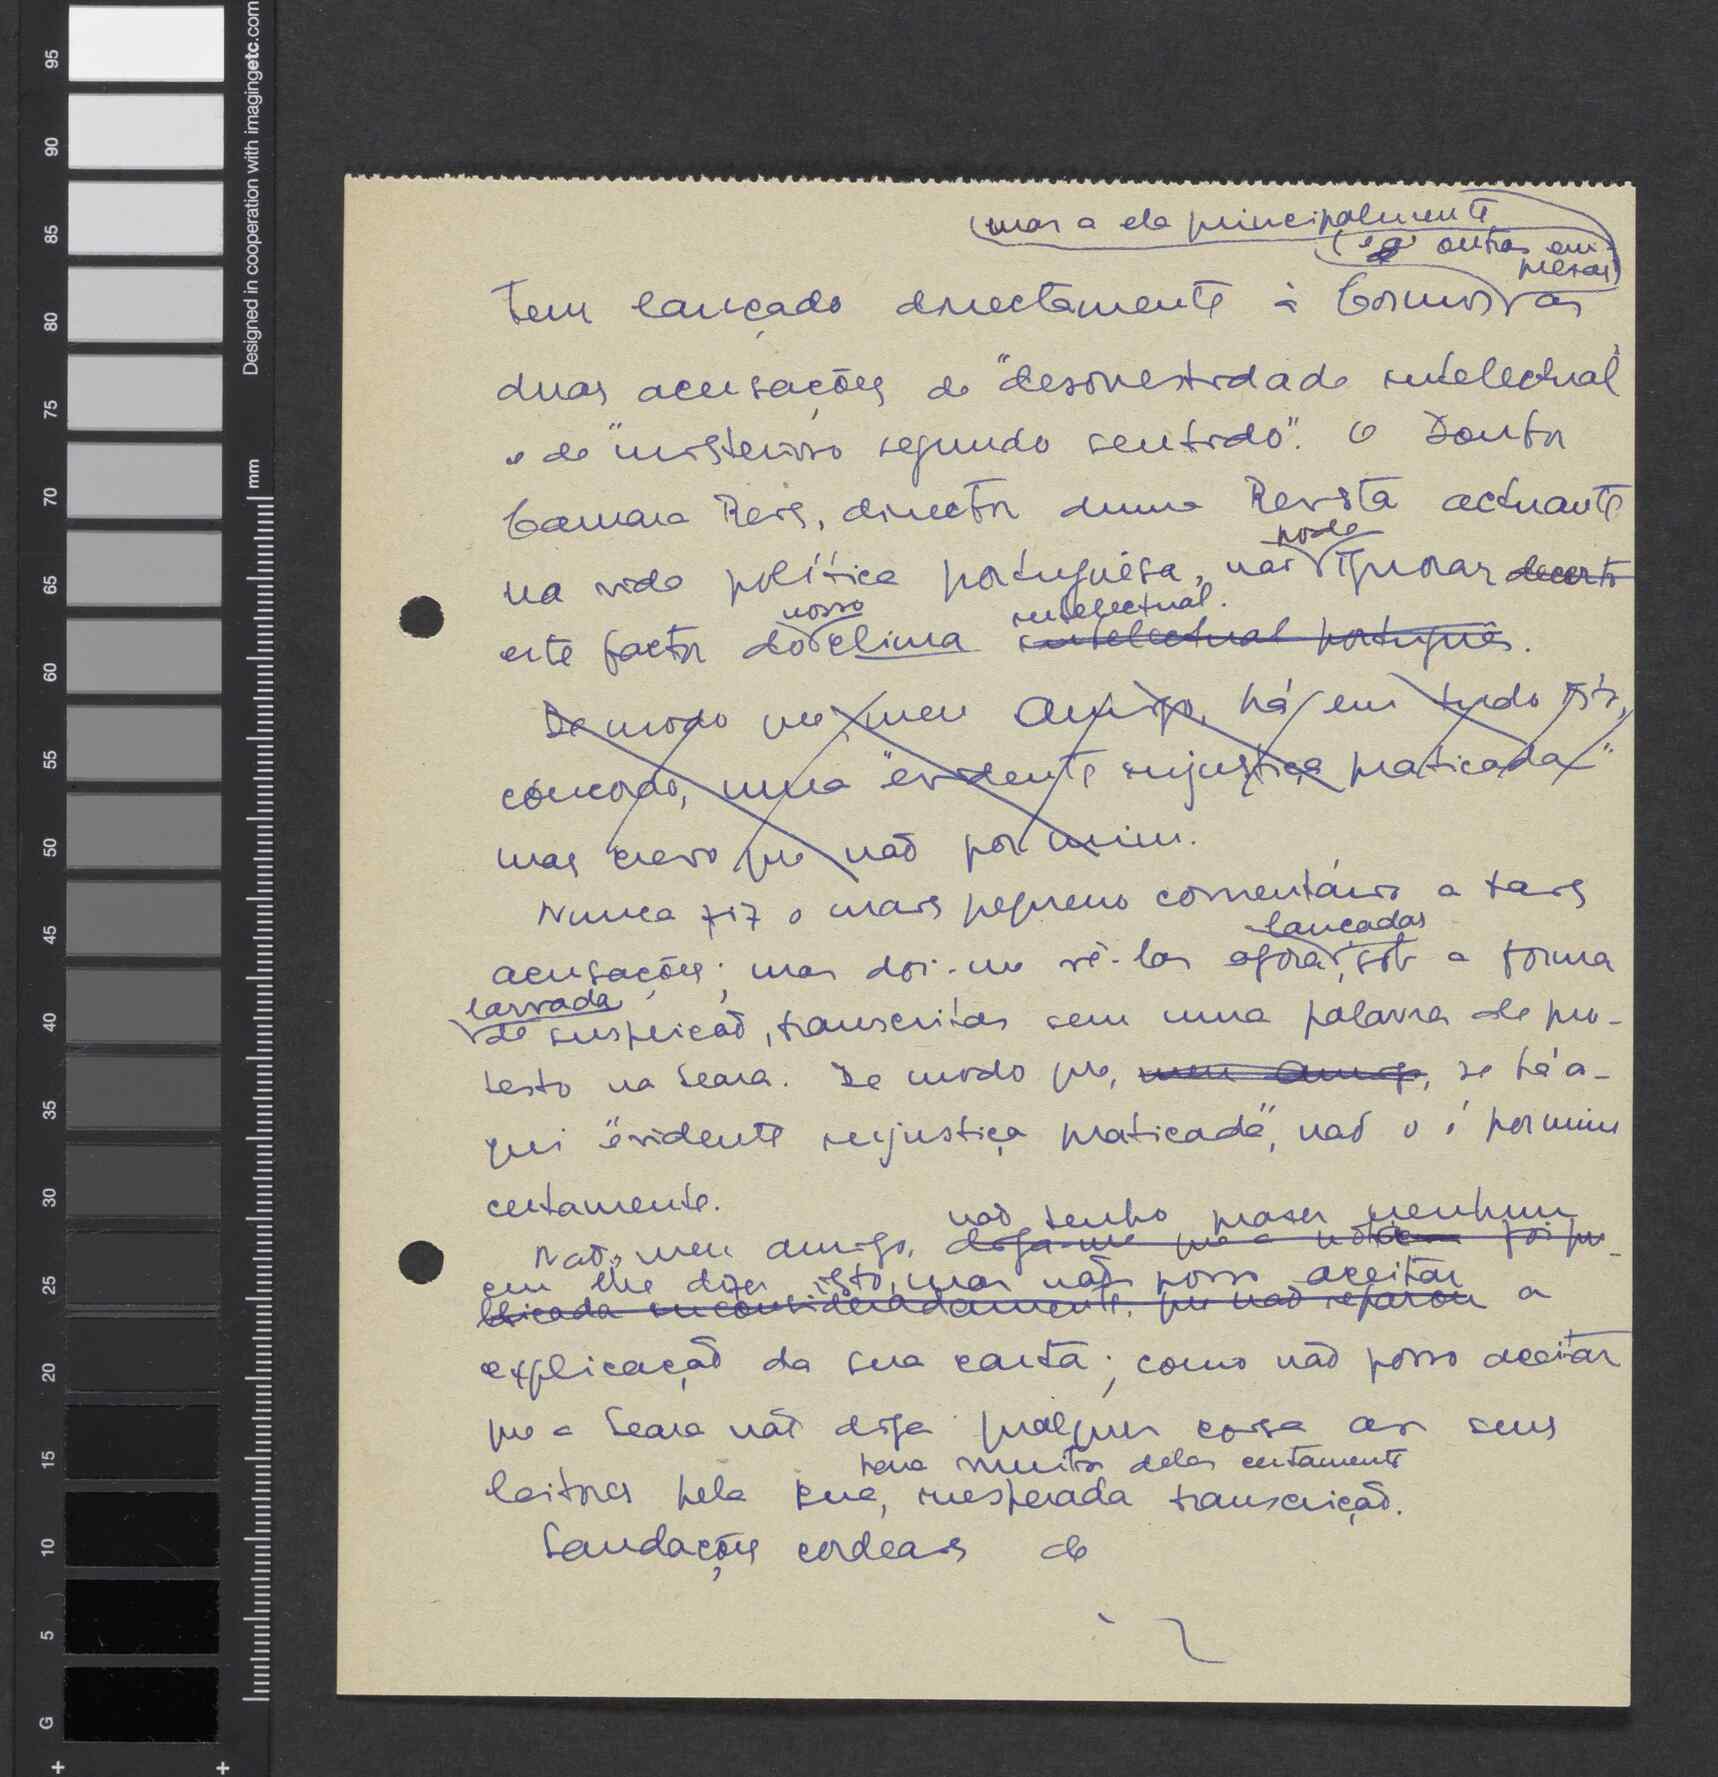 Designed in cooperation with imagingetc.com
mm
95
90
85
80
75
70
65
60
55
50
45
40
35
30
25
20
15
10
5
G
(mas a ela principalmente
(e a outras em-
presas)
tem lançado directamente à Cosmos as
duas acusações de "desonestidade intelectual"
e de "misterioso segundo sentido". O Doutor
Camara Reis, director duma Revista actuante
pode
na vida política portuguêsa, não ignorar decerto
nosso intelectual.
este factor do clima intelectual português.
De modo que, meu Amigo, há em tudo isto,
concordo, uma "evidente injustiça praticada"
mas creio que não por mim.
Nunca fiz o mais pequeno comentário a tais
lançadas
acusações; mas doi-me vê-las agora, sob a forma
larvada
de suspeição, transcritas sem uma palavra de pro-
testo na Seara. De modo que, meu Amigo, se há a-
qui "evidente injustiça praticada", não o é por mim
certamente.
não tenho prazer nenhum
Não, meu amigo, diga-me que a nótula foi pu-
em lhe dizer isto, mas não posso aceitar
blicada inconsideradamente, que não reparou a
explicação da sua carta; como não posso aceitar
que a Seara não diga qualquer coisa aos seus
para muitos deles certamente
leitores pela sua, inesperada transcrição.
Saudações cordeais de